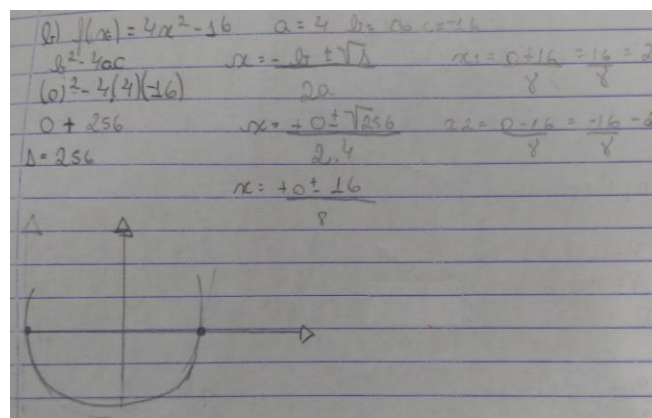 b) f(x) = 4x² - 16 a = 4 b = 0 c = -16
b² - 4ac
(0)² - 4(4)(-16)
0 + 256
Δ = 256
x = -b ± √Δ / 2a
x = +0 ± √256 / 2.4
x = +0 ± 16 / 8
x1 = 0+16 / 8 = 16 / 8 = 2
x2 = 0-16 / 8 = -16 / 8 -2